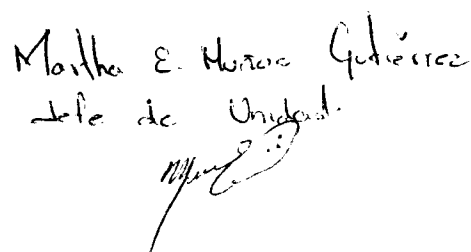 Martha E. Muñoz Gutiérrez
Jefe de Unidad.